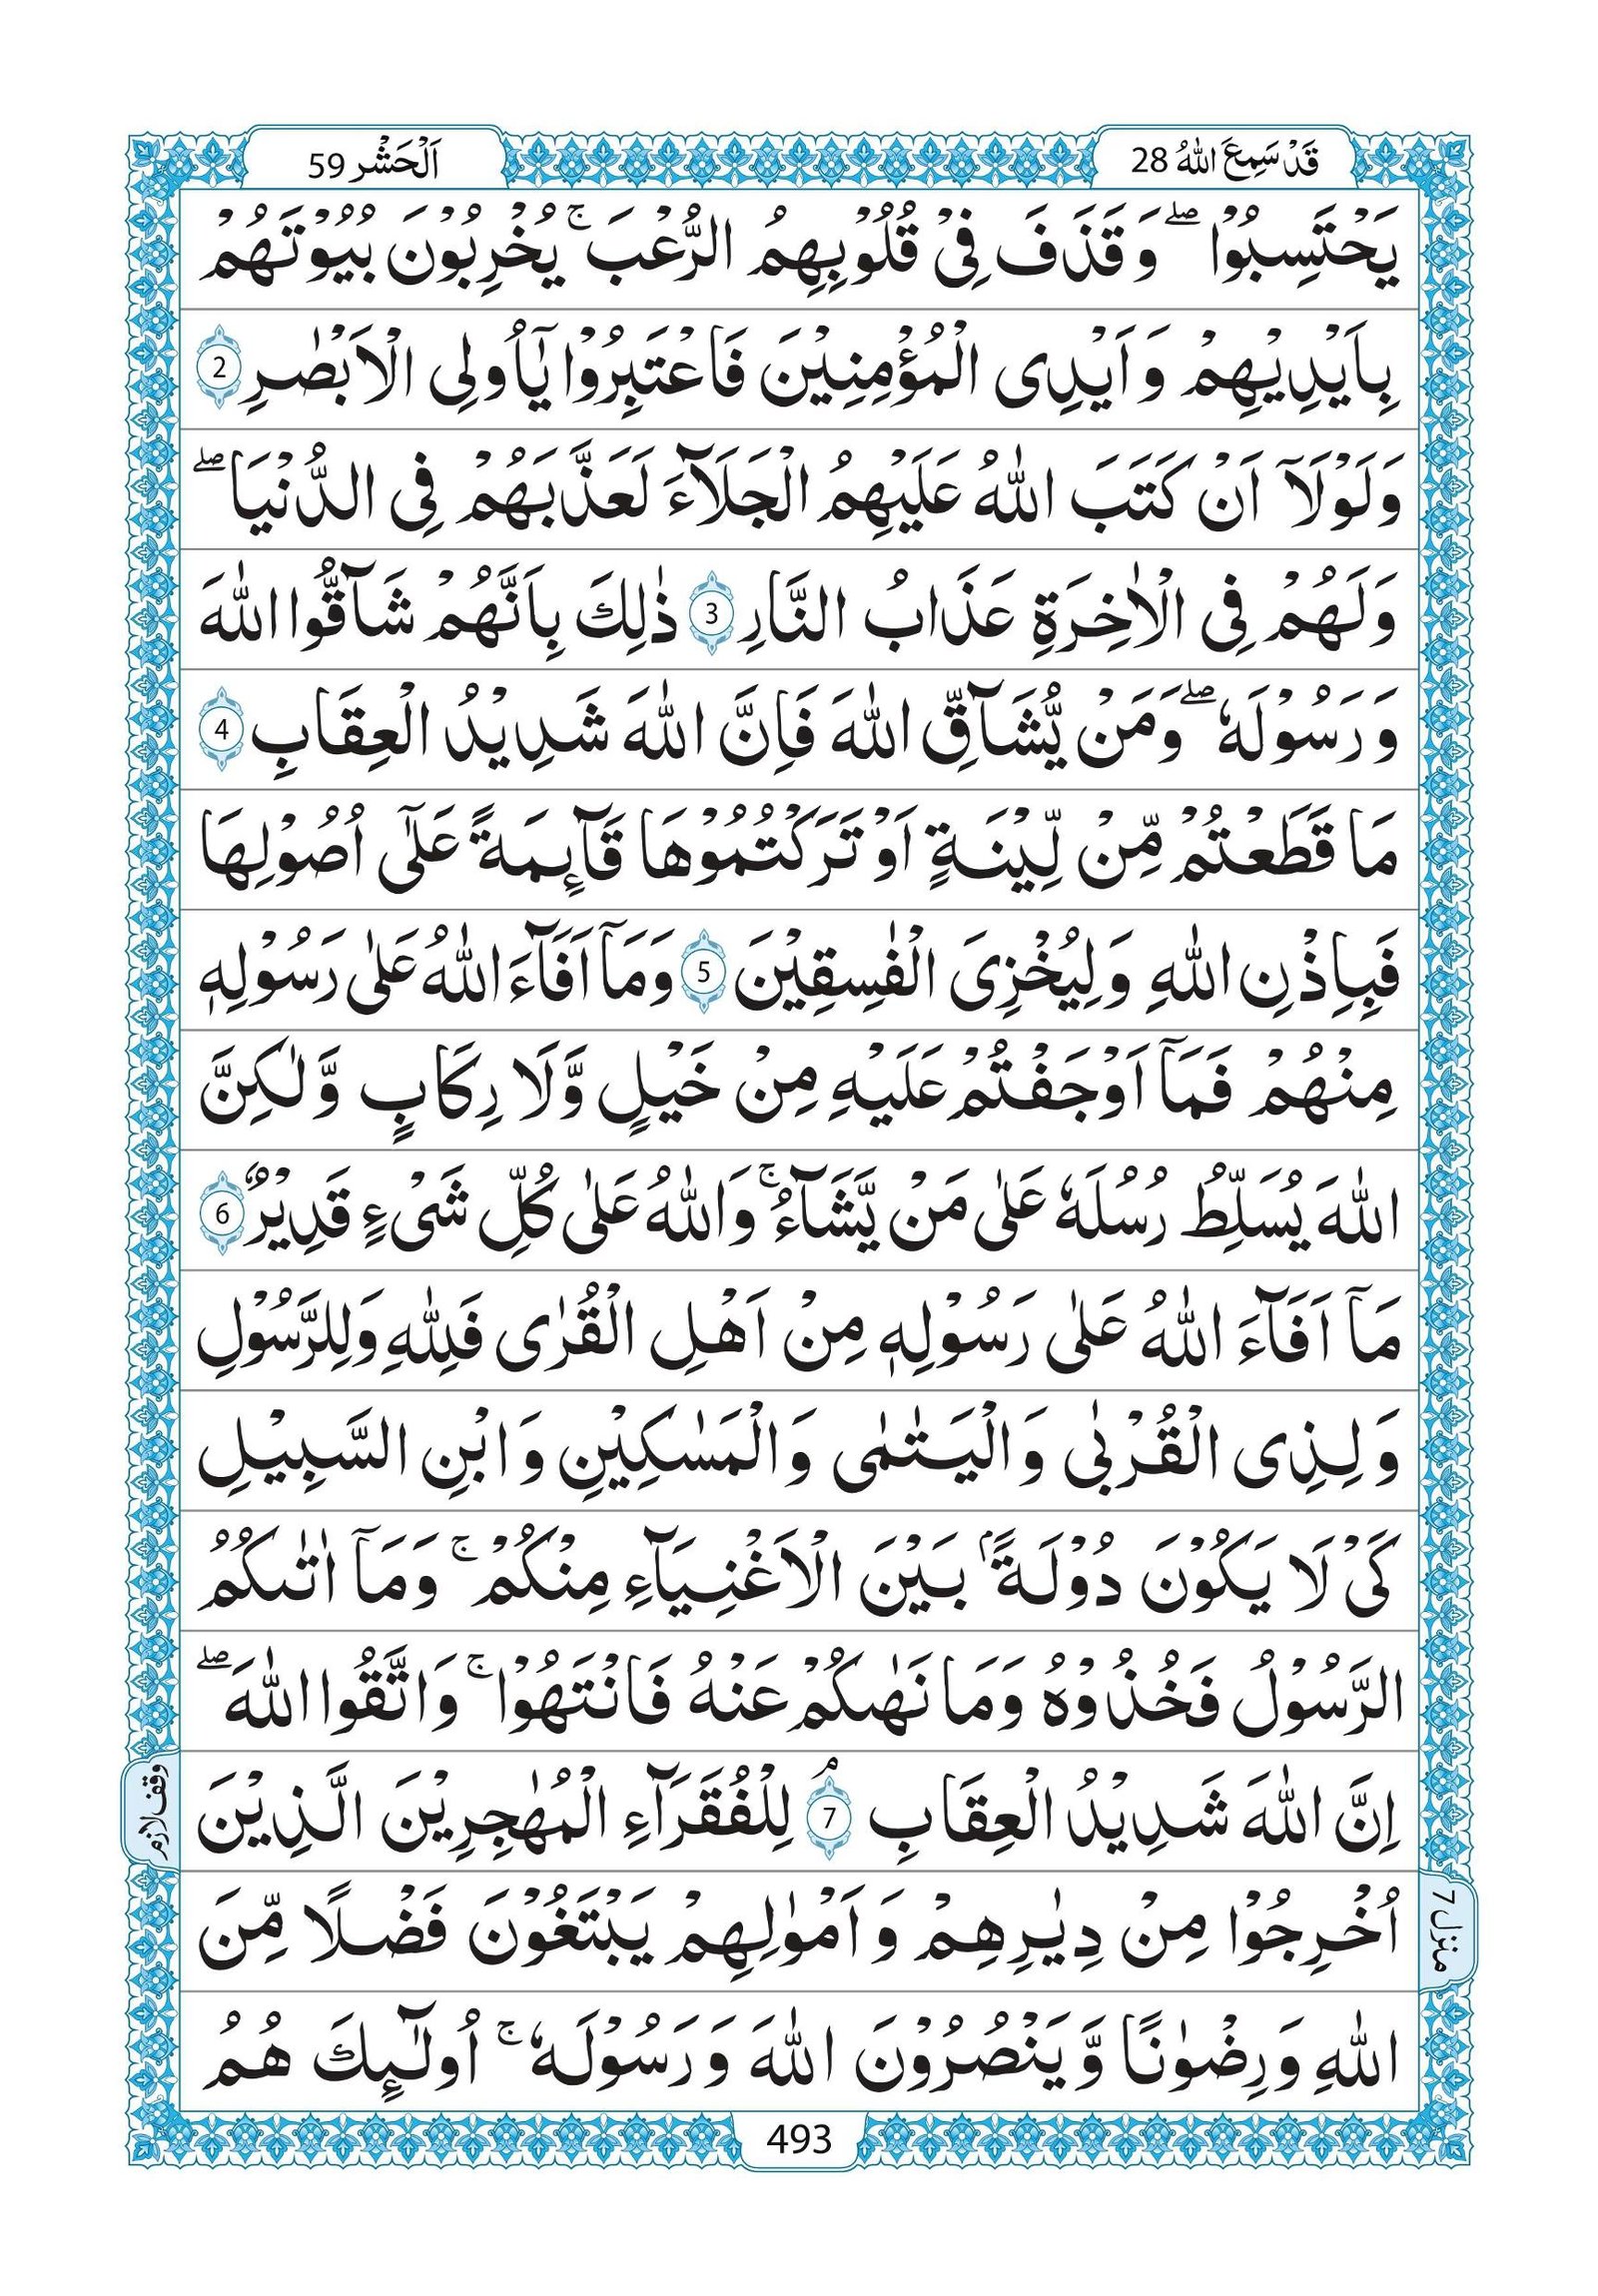 قَدْ سَمِعَ اللّٰهُ 28
اَلْحَشْر 59
يَحْتَسِبُوْا ۖ وَقَذَفَ فِيْ قُلُوْبِهِمُ الرُّعْبَ ۚ يُخْرِبُوْنَ بُيُوْتَهُمْ
بِاَيْدِيْهِمْ وَاَيْدِى الْمُؤْمِنِيْنَ فَاعْتَبِرُوْا يٰٓاُولِى الْاَبْصٰرِ 2
وَلَوْلَآ اَنْ كَتَبَ اللّٰهُ عَلَيْهِمُ الْجَلَآءَ لَعَذَّبَهُمْ فِى الدُّنْيَا ۖ
وَلَهُمْ فِى الْاٰخِرَةِ عَذَابُ النَّارِ 3 ذٰلِكَ بِاَنَّهُمْ شَآقُّوا اللّٰهَ
وَرَسُوْلَهٗ ۖ وَمَنْ يُّشَآقِّ اللّٰهَ فَاِنَّ اللّٰهَ شَدِيْدُ الْعِقَابِ 4
مَا قَطَعْتُمْ مِّنْ لِّيْنَةٍ اَوْ تَرَكْتُمُوْهَا قَآئِمَةً عَلٰٓى اُصُوْلِهَا
فَبِاِذْنِ اللّٰهِ وَلِيُخْزِىَ الْفٰسِقِيْنَ 5 وَمَآ اَفَآءَ اللّٰهُ عَلٰى رَسُوْلِهٖ
مِنْهُمْ فَمَآ اَوْجَفْتُمْ عَلَيْهِ مِنْ خَيْلٍ وَّلَا رِكَابٍ وَّلٰكِنَّ
اللّٰهَ يُسَلِّطُ رُسُلَهٗ عَلٰى مَنْ يَّشَآءُ ۚ وَاللّٰهُ عَلٰى كُلِّ شَىْءٍ قَدِيْرٌ 6
مَآ اَفَآءَ اللّٰهُ عَلٰى رَسُوْلِهٖ مِنْ اَهْلِ الْقُرٰى فَلِلّٰهِ وَلِلرَّسُوْلِ
وَلِذِى الْقُرْبٰى وَالْيَتٰمٰى وَالْمَسٰكِيْنِ وَابْنِ السَّبِيْلِ
كَىْ لَا يَكُوْنَ دُوْلَةًۢ بَيْنَ الْاَغْنِيَآءِ مِنْكُمْ ۚ وَمَآ اٰتٰىكُمُ
الرَّسُوْلُ فَخُذُوْهُ وَمَا نَهٰىكُمْ عَنْهُ فَانْتَهُوْا ۚ وَاتَّقُوا اللّٰهَ ۖ
اِنَّ اللّٰهَ شَدِيْدُ الْعِقَابِ ۘ 7 لِلْفُقَرَآءِ الْمُهٰجِرِيْنَ الَّذِيْنَ
وقف لازم
اُخْرِجُوْا مِنْ دِيٰرِهِمْ وَاَمْوٰلِهِمْ يَبْتَغُوْنَ فَضْلًا مِّنَ
منزل 7
اللّٰهِ وَرِضْوٰنًا وَّيَنْصُرُوْنَ اللّٰهَ وَرَسُوْلَهٗ ۚ اُولٰٓئِكَ هُمُ
493